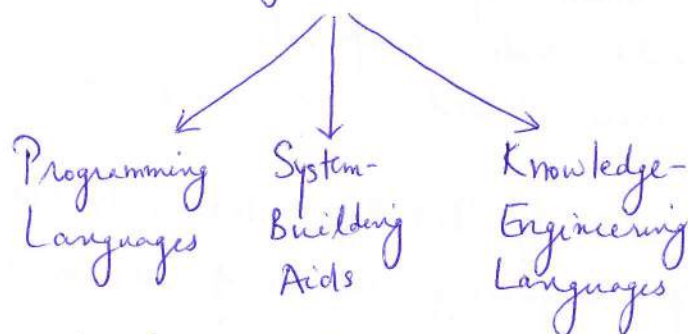 Programming
Languages
System-
Building
Aids
Knowledge-
Engineering
Languages